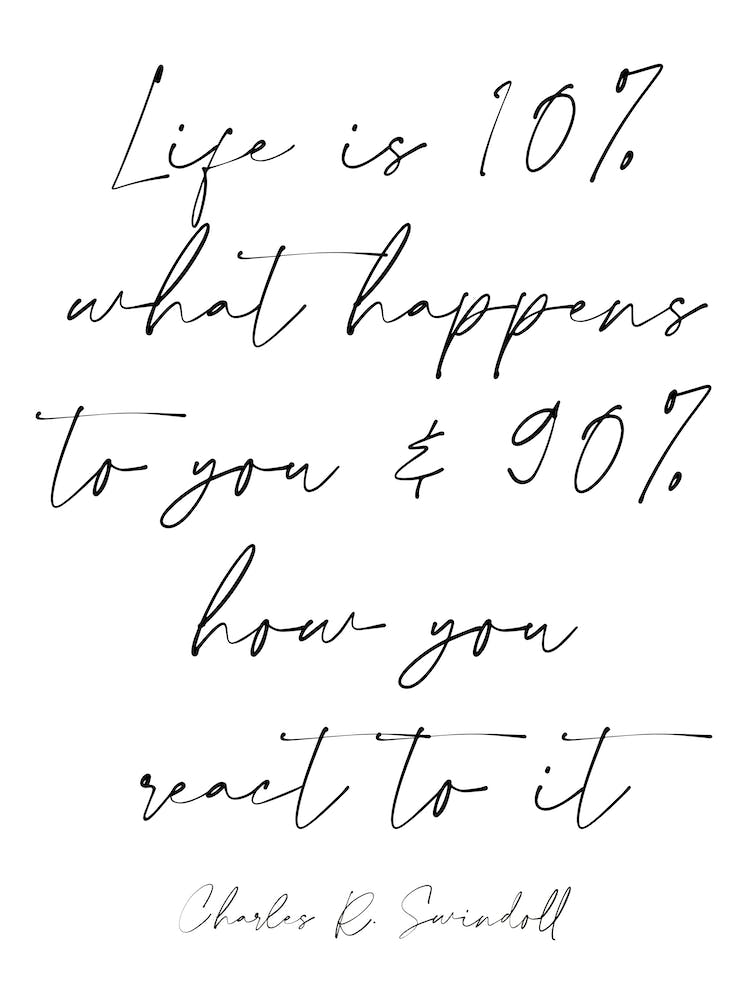 Life is 10%
what happens
to you & 90%
how you
react to it
Charles R. Swindoll